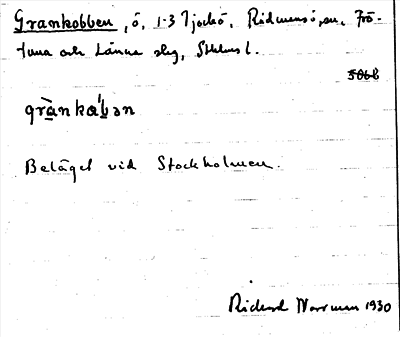 Grankobben, ö, 1·3 Tjockö, Ridmansö sn, Frö-
tuna och Länna slg, Sthlms l.
506b
gràŋka'bən
Beläget vid Stockholmen.
Rickard Norrman 1930